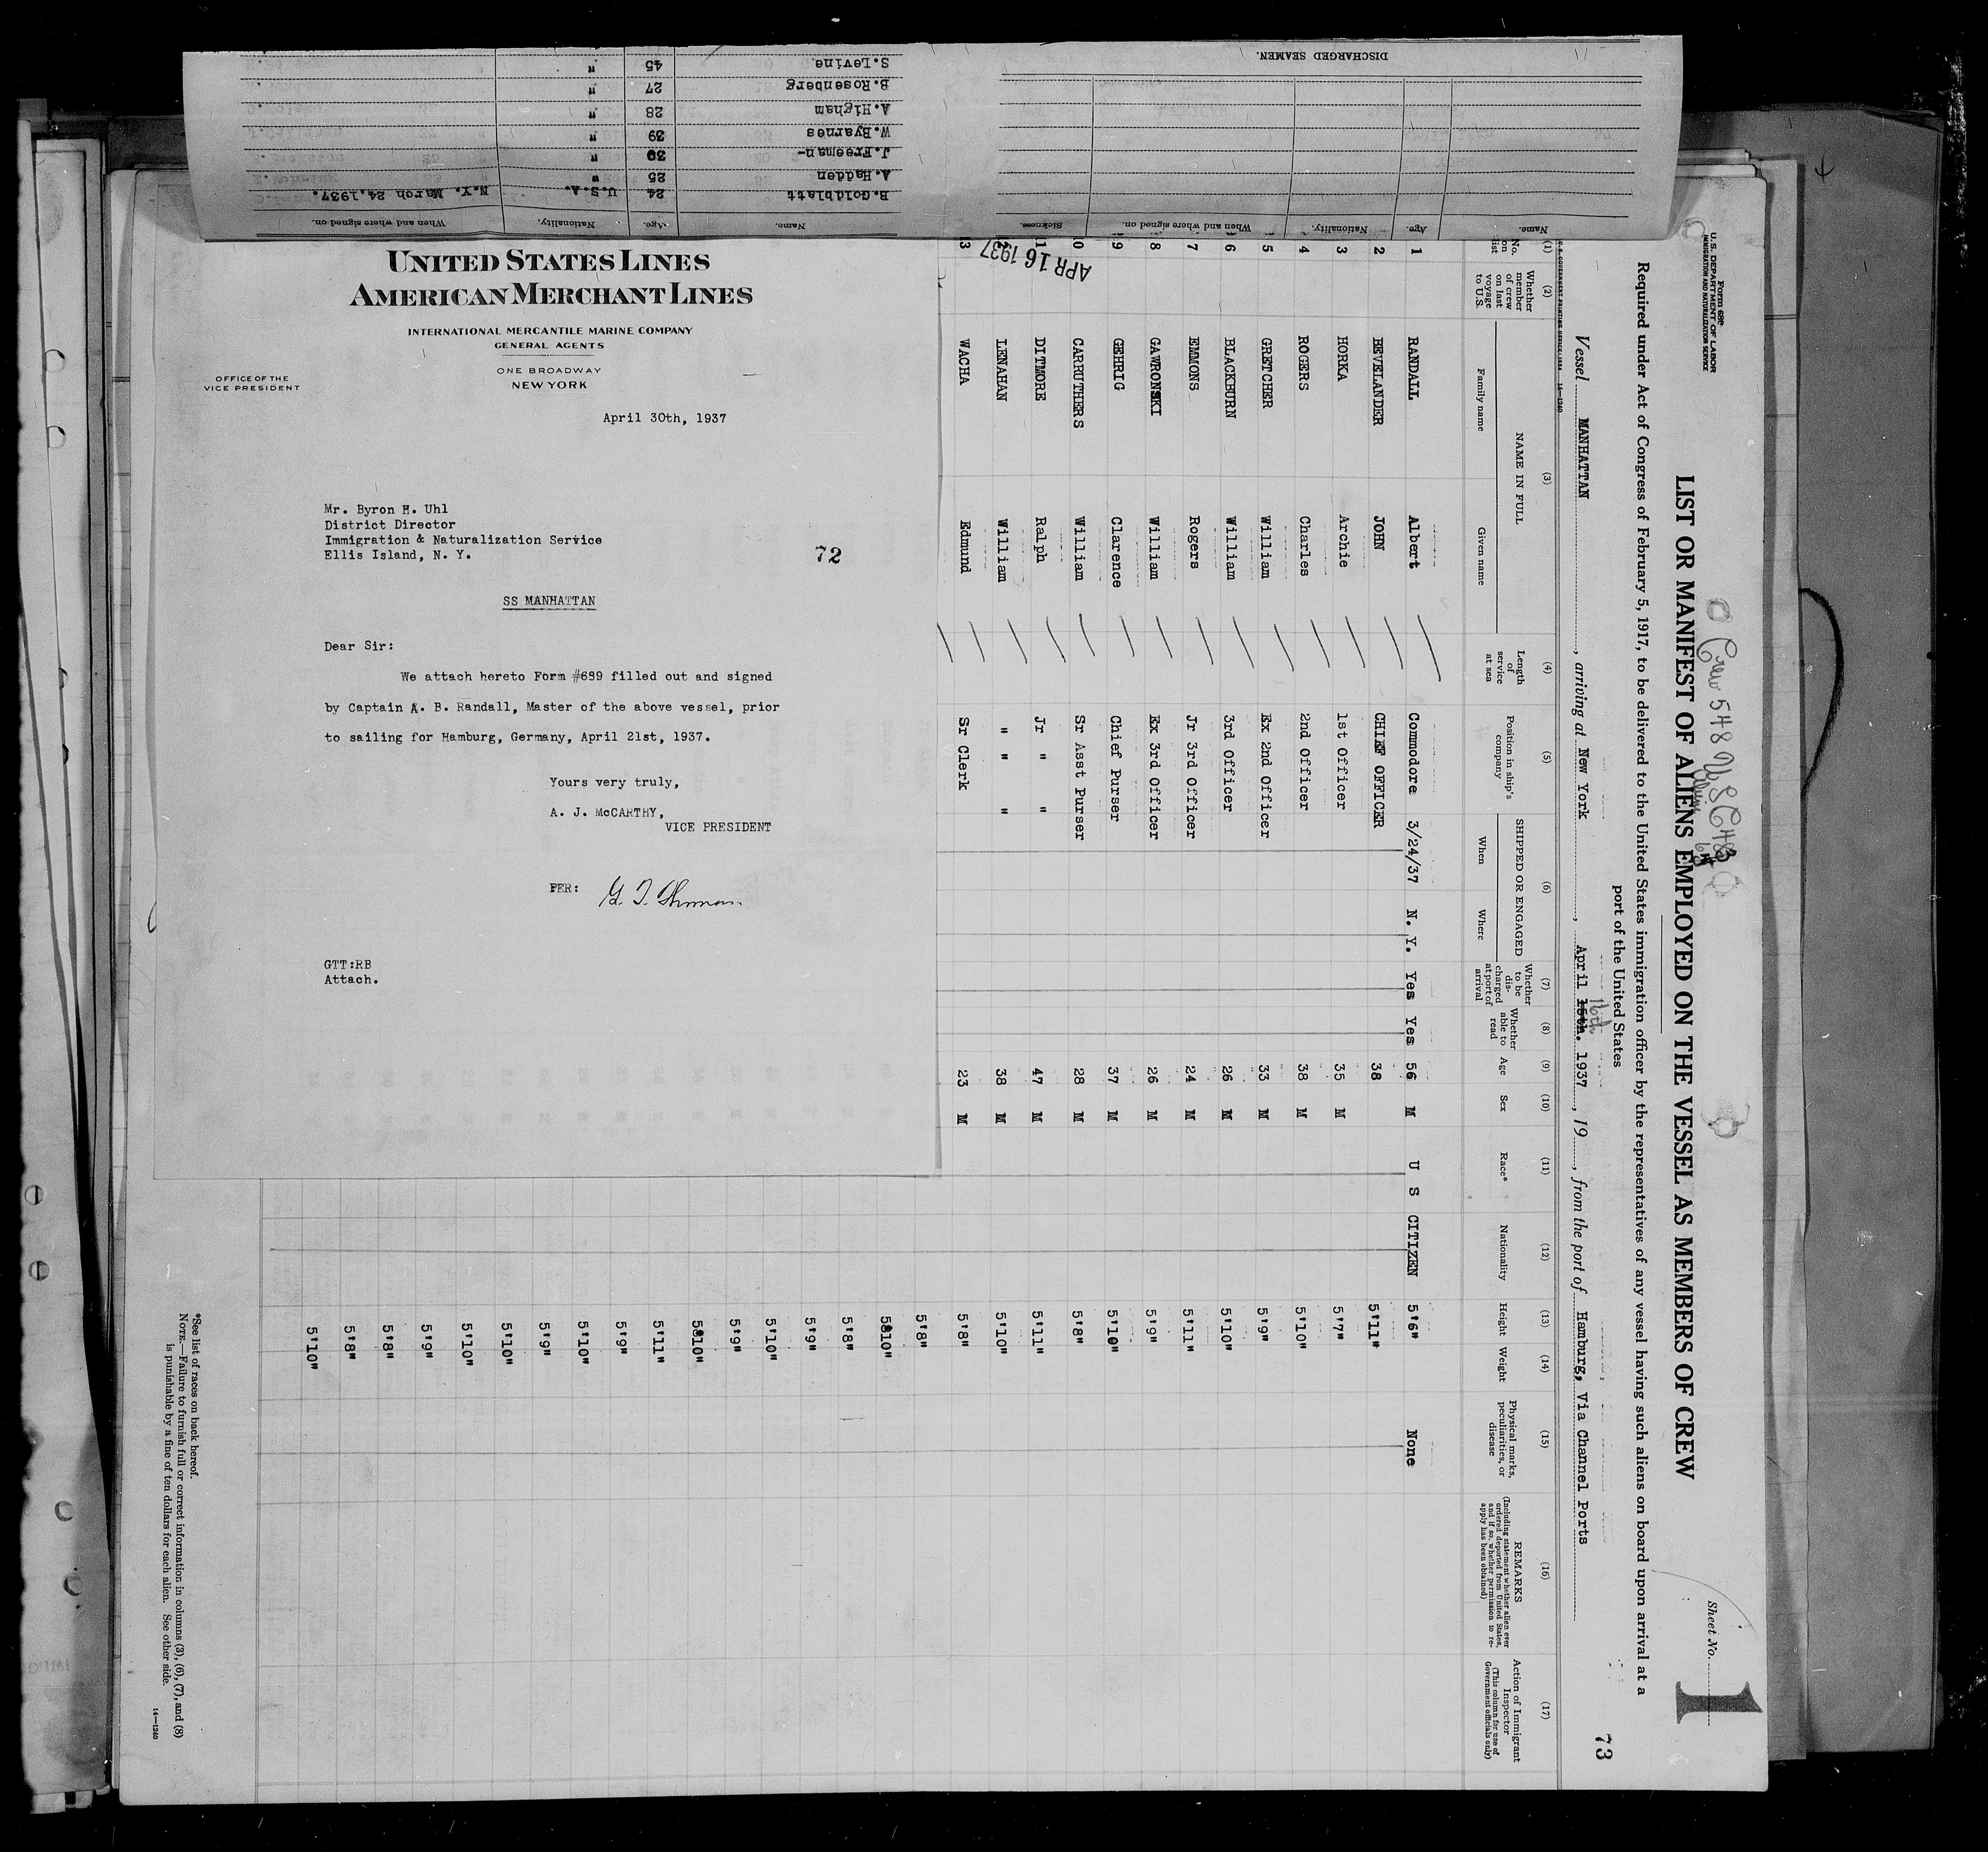 DISCHARGED SEAMEN.
Name. Age. Nationality. When and where signed on. Sickness.
Name. Age. Nationality. When and where signed on.
B.Goldblatt 24 U.S.A. N.Y. March 24,1937.
A.Hadden 25 "
J.Freeman- 30 "
W.Byarnes 39 "
A.Higham 28 "
B.Rosenberg 27 "
S.Levine 45 "
UNITED STATES LINES
AMERICAN MERCHANT LINES
INTERNATIONAL MERCANTILE MARINE COMPANY
GENERAL AGENTS
ONE BROADWAY
NEW YORK
OFFICE OF THE
VICE PRESIDENT
April 30th, 1937
Mr. Byron H. Uhl
District Director
Immigration & Naturalization Service
Ellis Island, N. Y.
72
SS MANHATTAN
Dear Sir:
We attach hereto Form #689 filled out and signed
by Captain A. B. Randall, Master of the above vessel, prior
to sailing for Hamburg, Germany, April 21st, 1937.
Yours very truly,
A. J. McCARTHY,
VICE PRESIDENT
PER:
GTT:RB
Attach.
Form 689
U. S. DEPARTMENT OF LABOR
IMMIGRATION AND NATURALIZATION SERVICE
Crew 548 USC 483
Aliens 65
Sheet No. 1
LIST OR MANIFEST OF ALIENS EMPLOYED ON THE VESSEL AS MEMBERS OF CREW
Required under Act of Congress of February 5, 1917, to be delivered to the United States immigration officer by the representatives of any vessel having such aliens on board upon arrival at a
port of the United States
73
16th
Vessel MANHATTAN, arriving at New York, April 15th. 1937, 19, from the port of Hamburg, Via Channel Ports
U.S. GOVERNMENT PRINTING OFFICE: 1934 14—1240
(1) (2) (3) (4) (5) (6) (7) (8) (9) (10) (11) (12) (13) (14) (15) (16) (17)
No. on list
Whether member of crew on last voyage to U.S.
NAME IN FULL
Family name Given name
Length of service at sea
Position in ship's company
SHIPPED OR ENGAGED
When Where
Whether to be discharged at port of arrival
Whether able to read
Age
Sex
Race*
Nationality
Height
Weight
Physical marks, peculiarities, or disease
REMARKS
(Including statement whether alien ever ordered deported from United States, and if so, whether permission to reapply has been obtained)
Action of Immigrant Inspector
(This column for use of Government officials only)
1 RANDALL Albert Commodore 3/24/37 N. Y. Yes Yes 56 M U S CITIZEN 5'6" None
2 BEVELANDER JOHN CHIEF OFFICER 38 5'11"
3 HORKA Archie 1st Officer 35 M 5'7"
4 ROGERS Charles 2nd Officer 38 M 5'10"
5 GRETCHER William Ex 2nd Officer 33 M 5'9"
6 BLACKBURN William 3rd Officer 26 M 5'10"
7 EMMONS Rogers Jr 3rd Officer 24 M 5'11"
8 GAWRONSKI William Ex 3rd Officer 26 M 5'9"
9 GEHRIG Clarence Chief Purser 37 M 5'10"
10 CARRUTHERS William Sr Asst Purser 28 M 5'8"
11 DITMORE Ralph Jr " " 47 M 5'11"
LENAHAN William " " " 38 M 5'10"
13 WACHA Edmund Sr Clerk 23 M 5'8"
APR 16 1937
5'8"
5810"
5'8"
5'9"
5'10"
5'9"
5810"
5'11"
5'9"
5'10"
5'9"
5'10"
5'10"
5'9"
5'8"
5'8"
5'10"
*See list of races on back hereof.
NOTE.—Failure to furnish full or correct information in columns (3), (6), (7), and (8)
is punishable by a fine of ten dollars for each alien. See other side.
14—1240